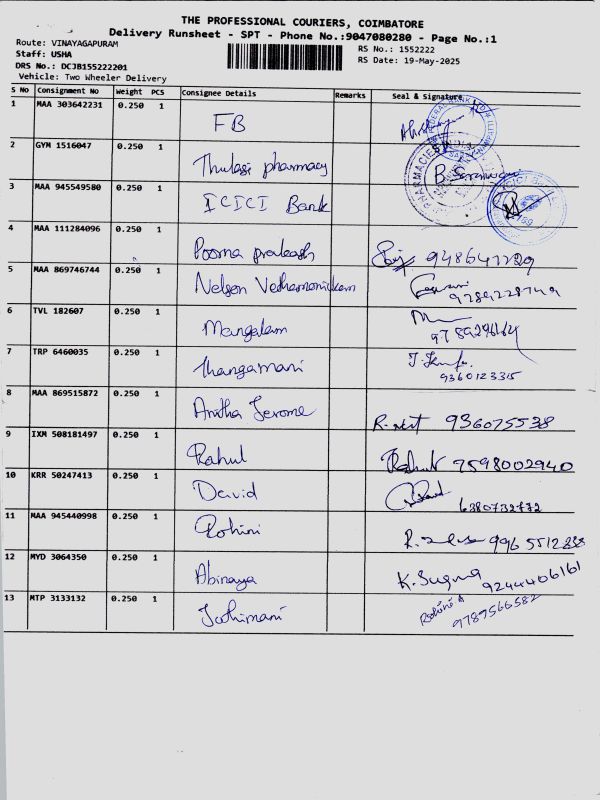 THE PROFESSIONAL COURIERS, COIMBATORE
Delivery Runsheet - SPT - Phone No.:9047080280 - Page No.:1
Route: VINAYAGAPURAM
RS No.: 1552222
Staff: USHA
RS Date: 19-May-2025
DRS No.: DCJB155222201
Vehicle: Two Wheeler Delivery
S No Consignment No Weight PCS Consignee Details Remarks Seal & Signature
1 MAA 303642231 0.250 1 FB
2 GYM 1516047 0.250 1 Thulasi pharmacy
3 MAA 945549580 0.250 1 ICICI Bank
4 MAA 111284096 0.250 1 Poorna prakash
5 MAA 869746744 0.250 1 Nelson Vethamonickam 9789228749
6 TVL 182607 0.250 1 Mangalam
7 TRP 6460035 0.250 1 Thangamani 9360123315
8 MAA 869515872 0.250 1 Anitha Jerome 936075538
9 IXM 508181497 0.250 1 Rahul Rahul 7598002940
10 KRR 50247413 0.250 1 David 6380732772
11 MAA 945440998 0.250 1 Rohini 9965512838
12 MYD 3064350 0.250 1 Abinaya K. Suguna 9244406161
13 MTP 3133132 0.250 1 Jothimani 9787566582